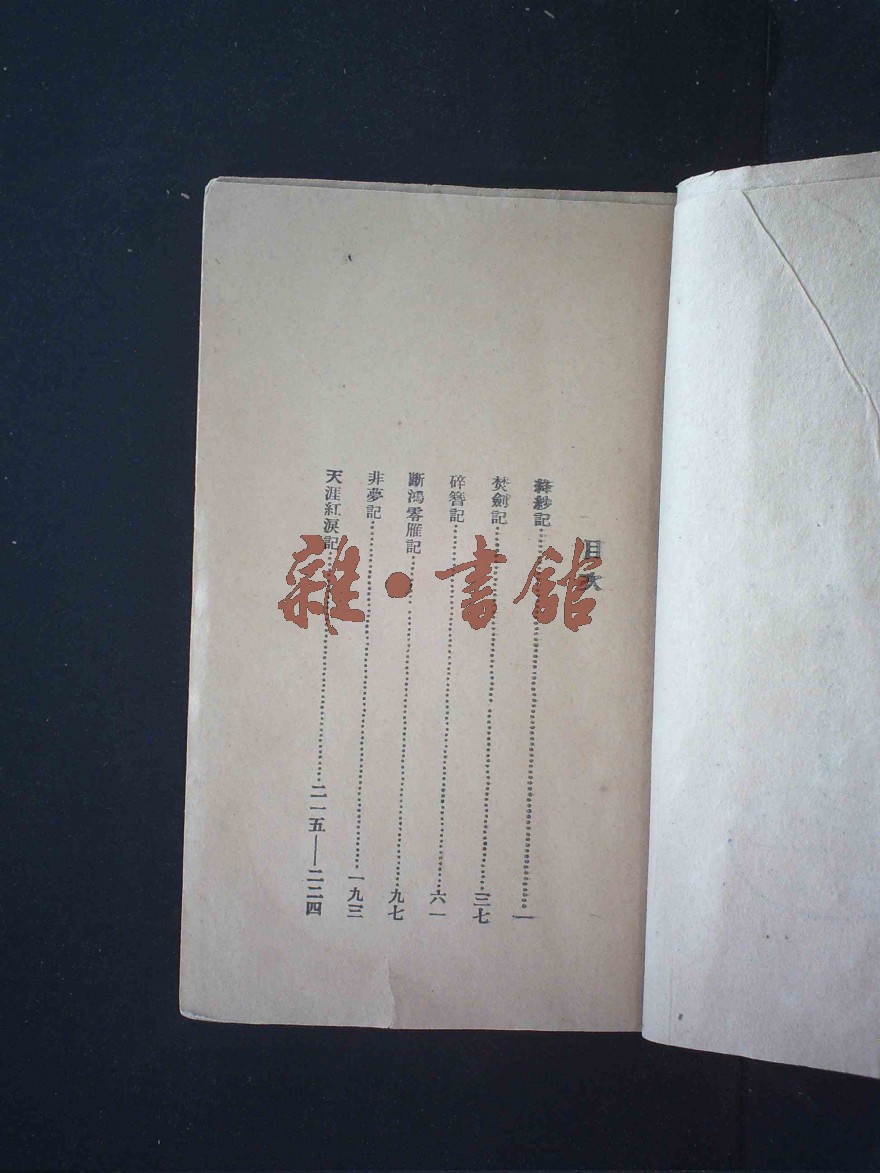 目次
絳紗記⋯⋯⋯⋯⋯⋯⋯⋯一
焚劍記⋯⋯⋯⋯⋯⋯⋯⋯三七
碎簪記⋯⋯⋯⋯⋯⋯⋯⋯六一
斷鴻零雁記⋯⋯⋯⋯⋯⋯⋯⋯九七
非夢記⋯⋯⋯⋯⋯⋯⋯⋯一九三
天涯紅淚記⋯⋯⋯⋯⋯⋯⋯⋯二一五——二二四
雜·書館